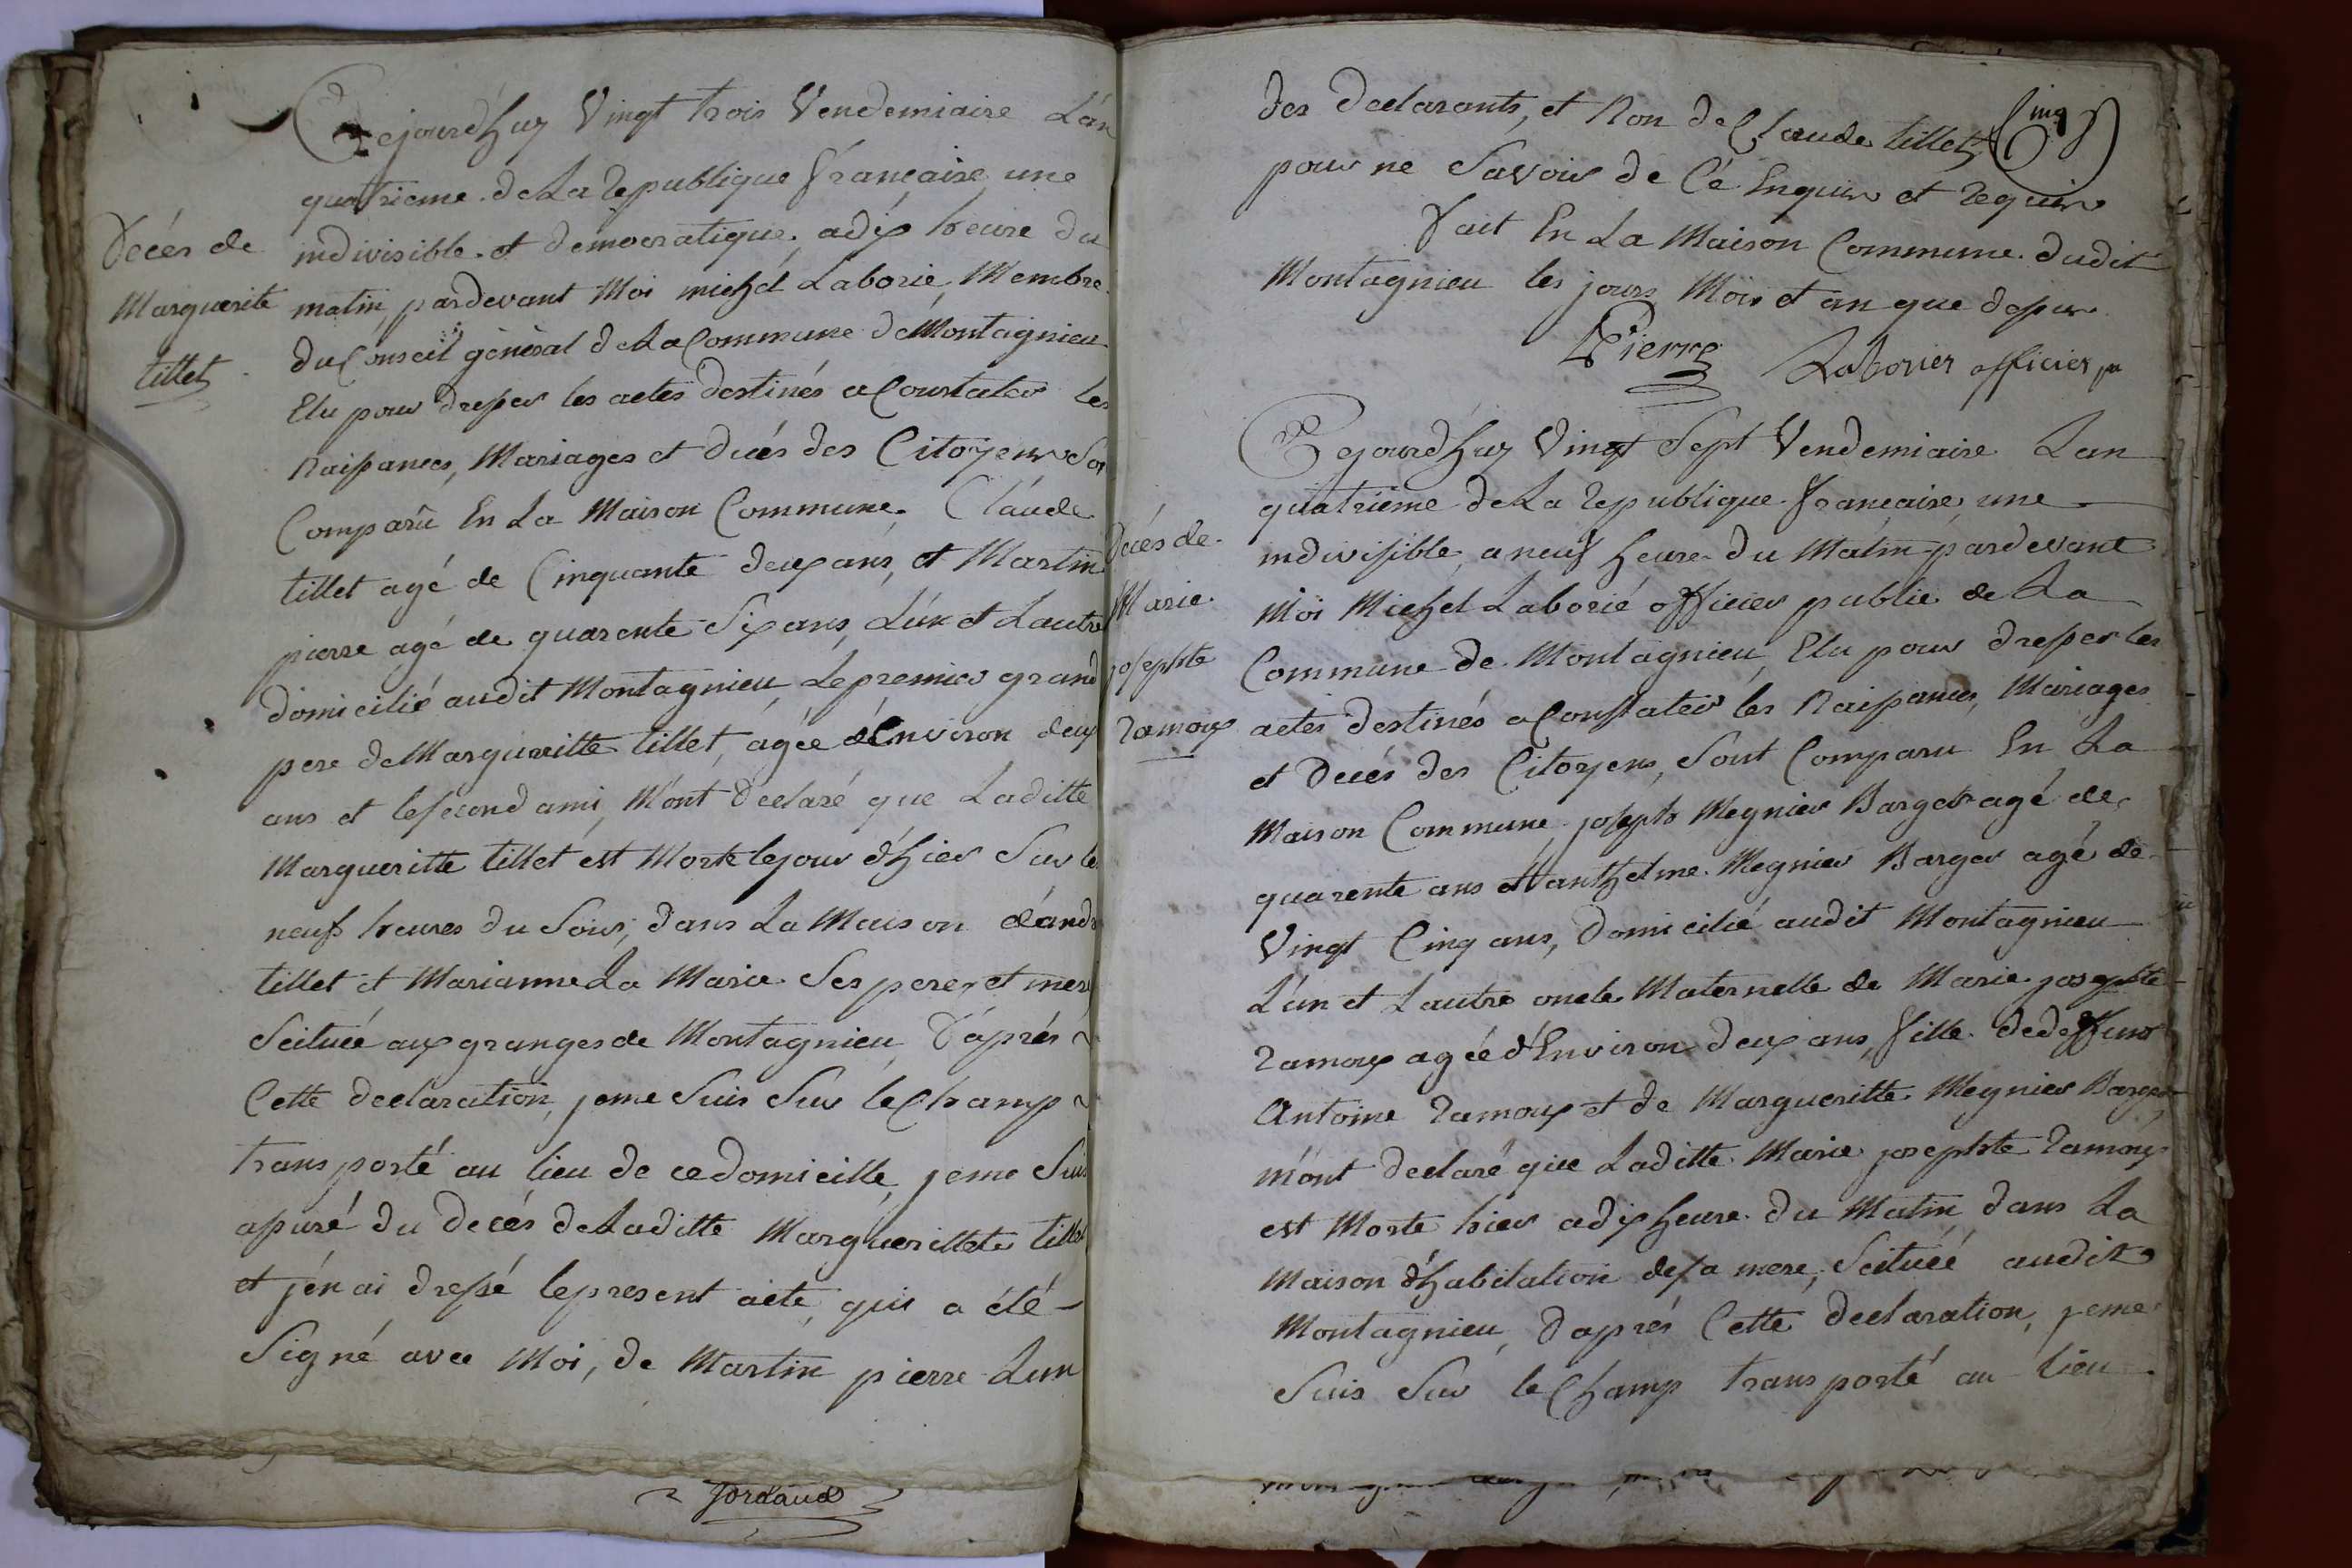 Cejourd'huy Vingt trois Vendemiaire L'an
quatrieme de La Republique française, une
indivisible et democratique, a dix heure du
matin, pardevant Moi michel Laborie, Membre
du Conseil général de La Commune de Montagnieu
Elu pour dresser les actes destinés a Constater les
Naissances, Mariages et décés des Citoyens Son
Comparu En La Maison Commune. Claude
tillet agé de Cinquante deux ans, et Martin
pierre agé de quarente Six ans, L'un et L'autre
domicilié audit Montagnieu, Le premier grand
pere de Margueritte tillet, agée d'Environ deux
ans et le second ami, M'ont declaré que Laditte
Margueritte tillet est Morte le jour d'hier Sur le
neuf heures du Soir, dans La Maison d'andr
tillet et Marianne La Marie Ses pere et mere
Scituée aux granges de Montagnieu, D'aprés
Cette declaration, je me Suis Sur le Champ
transporté au lieu de ce domicille, je me Suis
assuré du decés de Laditte Marguerittete tillet
et j'en ai dressé le present acte, qui a été
Signé avec Moi, de Martin pierre L'un
Décés de
Marguerite
tillet
Jordaud
Cinq
des declarants, et Non de Claude tillet
pour ne Savoir de Cé Enquis et Requis
fait En La Maison Commune dudit
Montagnieu les jours, Mois et an que dessus
Pierre
Laborier officier p
Cejourd'huy Vingt Sept Vendemiaire L'an
quatrieme de La Republique francaise, une
indivisible, a neuf heure du Matin pardevant
Moi Michel Laborié officier public de La
Commune de Montagnieu, Elu pour dresser les
actes destinés a Constater les Naissances, Mariages
et Decés des Citoyens, Sont Comparu En La
Maison Commune, josepts Megnier Barger agé de
quarente ans et anthelme Megnier Barger agé de
Vingt Cinq ans, domicilié audit Montagnieu
L'un et L'autre oncle Maternelle de Marie josephte
Ramoux agée d'Environ deux ans, fille de deffunt
Antoine Ramoux et de Margueritte Megnier Barger
m'ont declaré que Laditte Marie josephte Ramoux
est Morte hier a dix heure du Matin dans La
Maison d'habitation de sa mere, Scituée audit
Montagnieu, D'aprés Cette declaration, je me
Suis Sur le Champ transporté au lieu
Décés de
Marie
josephte
Ramoux